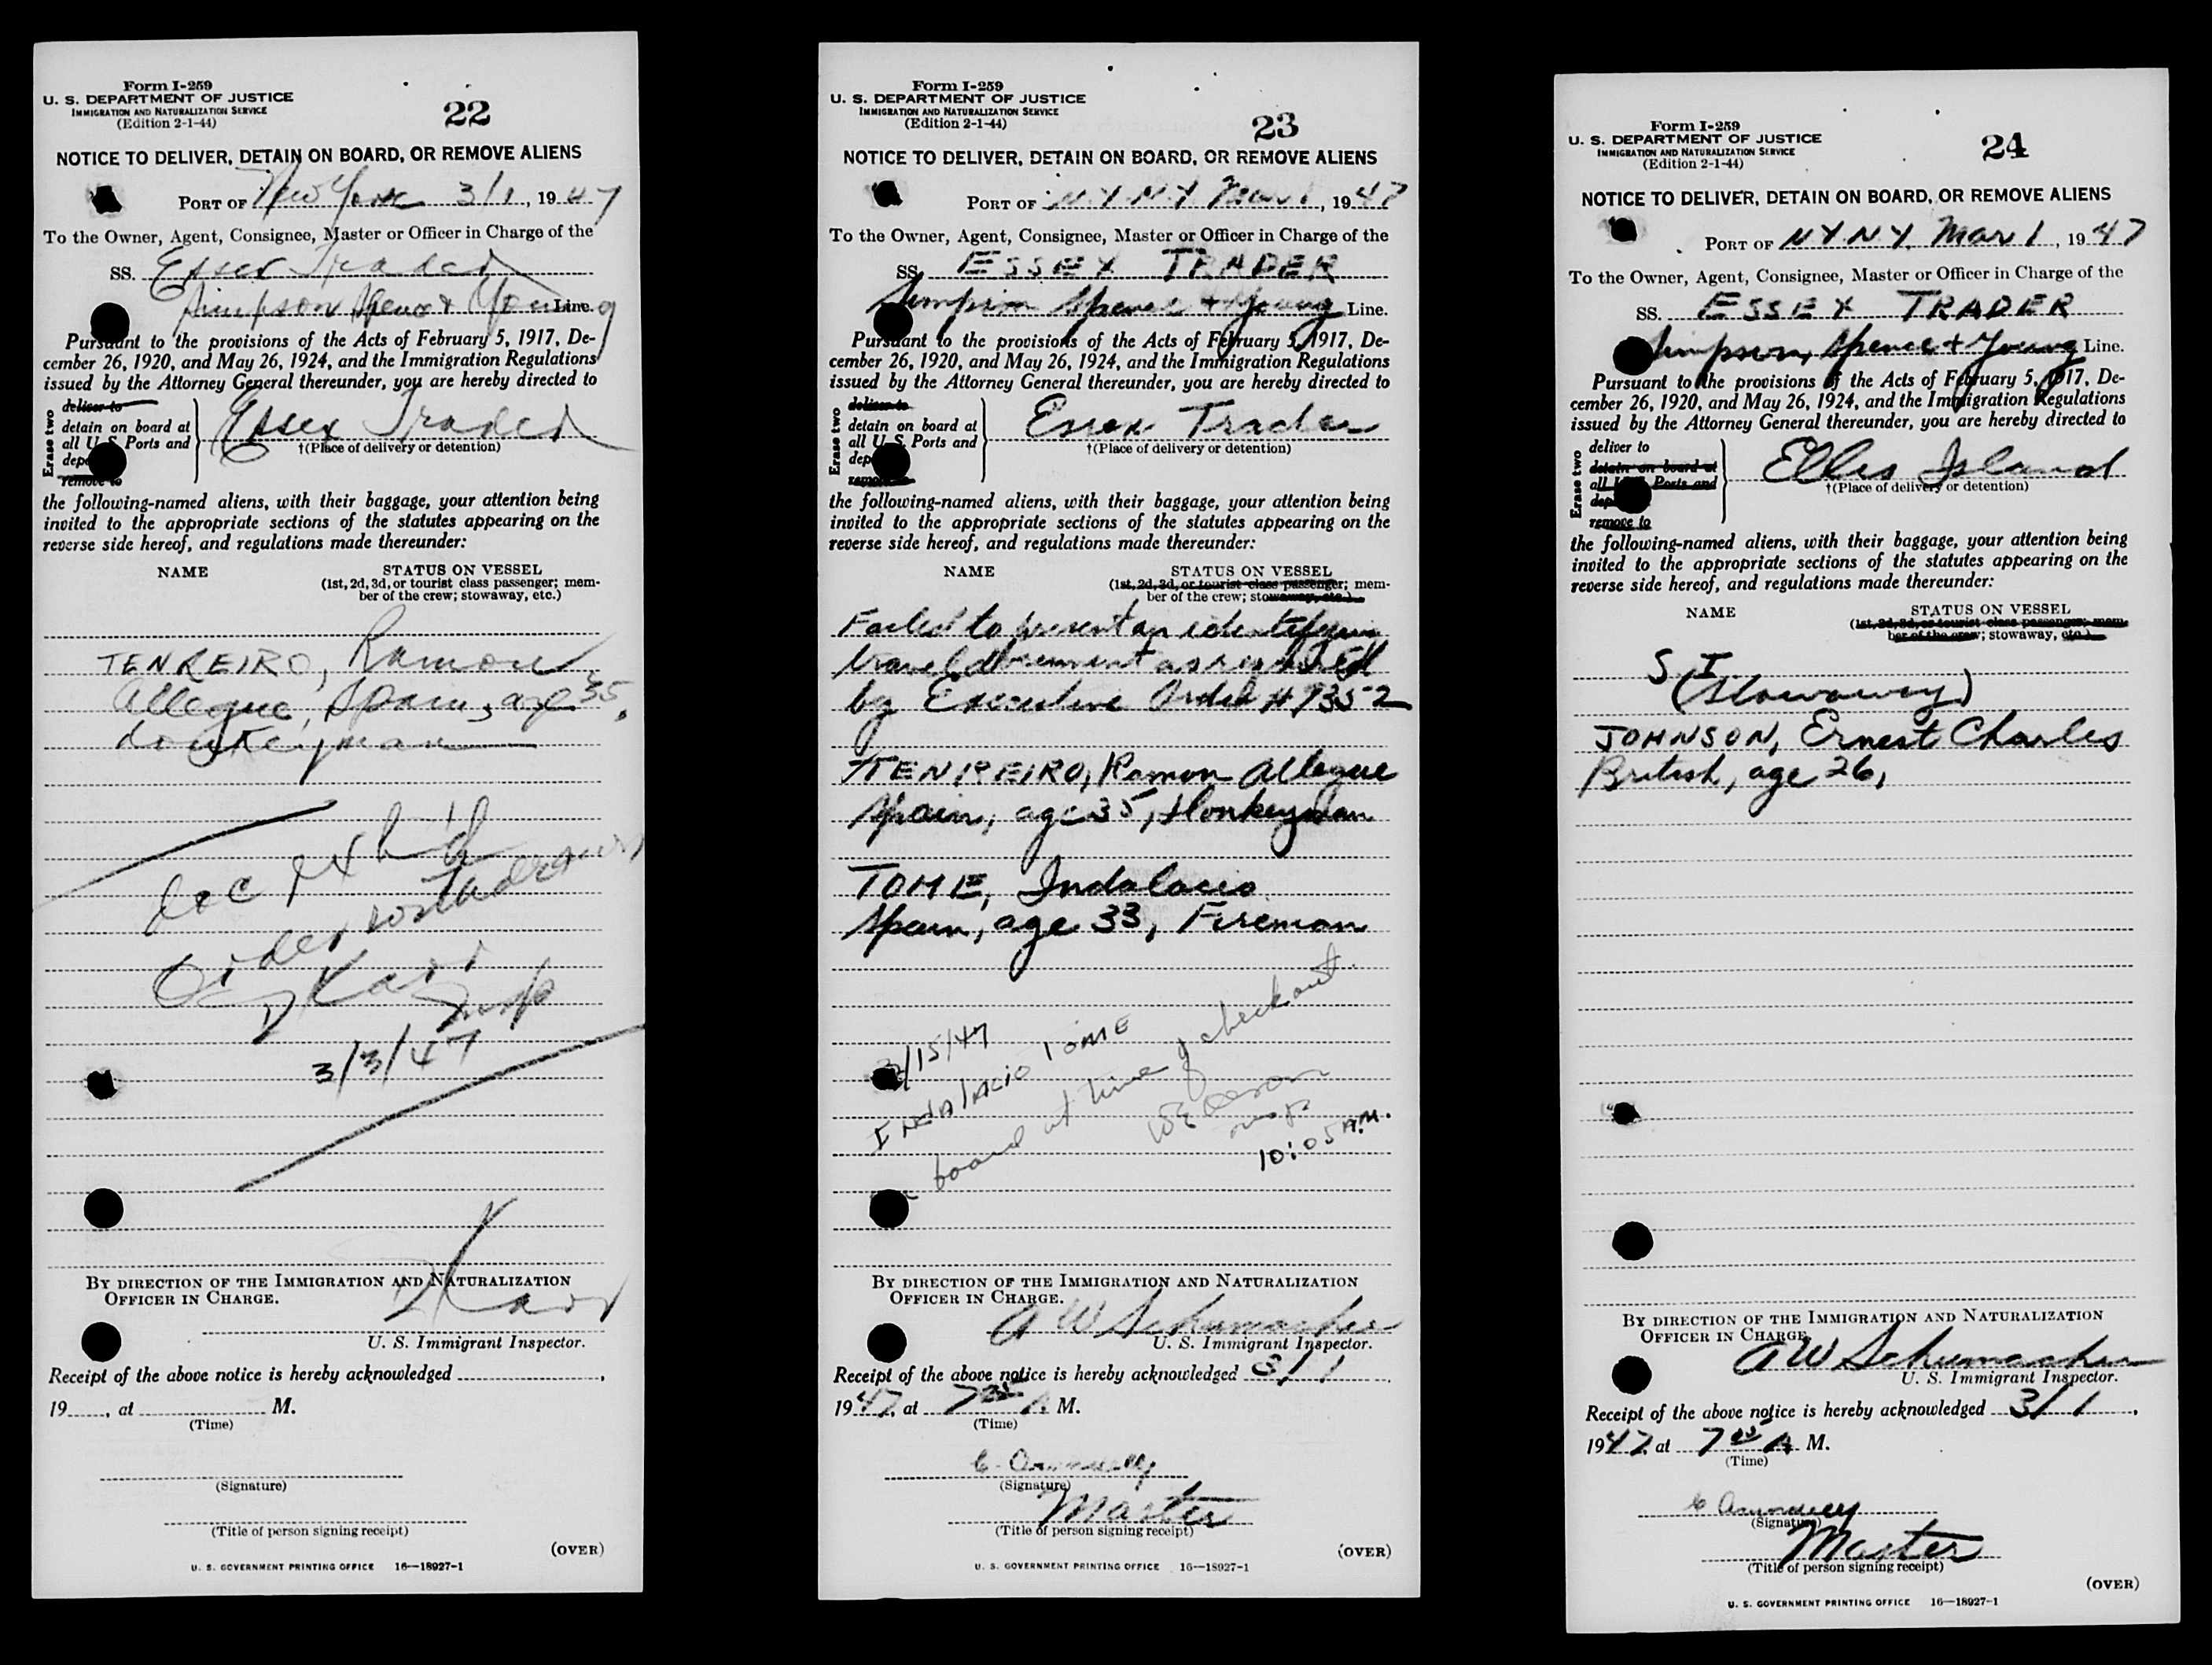 Form I-259
U. S. DEPARTMENT OF JUSTICE
IMMIGRATION AND NATURALIZATION SERVICE
(Edition 2-1-44)
22
NOTICE TO DELIVER, DETAIN ON BOARD, OR REMOVE ALIENS
PORT OF New York 3/1, 1947
To the Owner, Agent, Consignee, Master or Officer in Charge of the
SS. Essex Trader
Simpson Spence & Young Line.
Pursuant to the provisions of the Acts of February 5, 1917, De-
cember 26, 1920, and May 26, 1924, and the Immigration Regulations
issued by the Attorney General thereunder, you are hereby directed to
Erase two
deliver to
detain on board at
all U. S. Ports and
remove to
Essex Trader
†(Place of delivery or detention)
the following-named aliens, with their baggage, your attention being
invited to the appropriate sections of the statutes appearing on the
reverse side hereof, and regulations made thereunder:
NAME STATUS ON VESSEL
(1st, 2d, 3d, or tourist class passenger; mem-
ber of the crew; stowaway, etc.)
TENREIRO, Ramon
Allegue, Spain, age 35,
donkeyman
doc exh'd
Order
Karr
Insp
3/3/47
BY DIRECTION OF THE IMMIGRATION AND NATURALIZATION
OFFICER IN CHARGE.
Karr
U. S. Immigrant Inspector.
Receipt of the above notice is hereby acknowledged
19 , at M.
(Time)
(Signature)
(Title of person signing receipt)
(OVER)
U. S. GOVERNMENT PRINTING OFFICE 16—18927-1
Form I-259
U. S. DEPARTMENT OF JUSTICE
IMMIGRATION AND NATURALIZATION SERVICE
(Edition 2-1-44)
23
NOTICE TO DELIVER, DETAIN ON BOARD, OR REMOVE ALIENS
PORT OF N.Y.N.Y. Mar 1, 1947
To the Owner, Agent, Consignee, Master or Officer in Charge of the
SS. ESSEX TRADER
Simpson Spence + Young Line.
Pursuant to the provisions of the Acts of February 5, 1917, De-
cember 26, 1920, and May 26, 1924, and the Immigration Regulations
issued by the Attorney General thereunder, you are hereby directed to
Erase two
deliver to
detain on board at
all U. S. Ports and
remove to
Essex Trader
†(Place of delivery or detention)
the following-named aliens, with their baggage, your attention being
invited to the appropriate sections of the statutes appearing on the
reverse side hereof, and regulations made thereunder:
NAME STATUS ON VESSEL
(1st, 2d, 3d, or tourist class passenger; mem-
ber of the crew; stowaway, etc.)
Failed to present an identifying
travel document as required
by Executive Order #9352
TENREIRO, Ramon Allegue
Spain, age 35, Donkeyman
TOME, Indalacio
Spain, age 33, Fireman
3/15/47
INDALACIO TOME
board at time of checkout
10:05 A.M.
BY DIRECTION OF THE IMMIGRATION AND NATURALIZATION
OFFICER IN CHARGE.
A W Schumacher
U. S. Immigrant Inspector.
Receipt of the above notice is hereby acknowledged 3/1
1947, at 7 35 A. M.
(Time)
(Signature)
Master
(Title of person signing receipt)
(OVER)
U. S. GOVERNMENT PRINTING OFFICE 16—18927-1
Form I-259
U. S. DEPARTMENT OF JUSTICE
IMMIGRATION AND NATURALIZATION SERVICE
(Edition 2-1-44)
24
NOTICE TO DELIVER, DETAIN ON BOARD, OR REMOVE ALIENS
PORT OF N.Y.N.Y. Mar 1, 1947
To the Owner, Agent, Consignee, Master or Officer in Charge of the
SS. ESSEX TRADER
Simpson, Spence + Young Line.
Pursuant to the provisions of the Acts of February 5, 1917, De-
cember 26, 1920, and May 26, 1924, and the Immigration Regulations
issued by the Attorney General thereunder, you are hereby directed to
Erase two
deliver to
detain on board at
all U. S. Ports and
remove to
Ellis Island
†(Place of delivery or detention)
the following-named aliens, with their baggage, your attention being
invited to the appropriate sections of the statutes appearing on the
reverse side hereof, and regulations made thereunder:
NAME STATUS ON VESSEL
(1st, 2d, 3d, or tourist class passenger; mem-
ber of the crew; stowaway, etc.)
S.I.
(Stowaway)
JOHNSON, Ernest Charles
British, age 26,
BY DIRECTION OF THE IMMIGRATION AND NATURALIZATION
OFFICER IN CHARGE.
A W Schumacher
U. S. Immigrant Inspector.
Receipt of the above notice is hereby acknowledged 3/1,
1947, at 7 A. M.
(Time)
(Signature)
Master
(Title of person signing receipt)
(OVER)
U. S. GOVERNMENT PRINTING OFFICE 16—18927-1